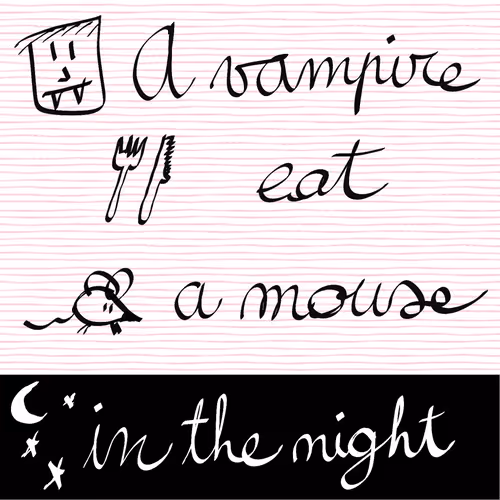 A vampire
eat
a mouse
in the night